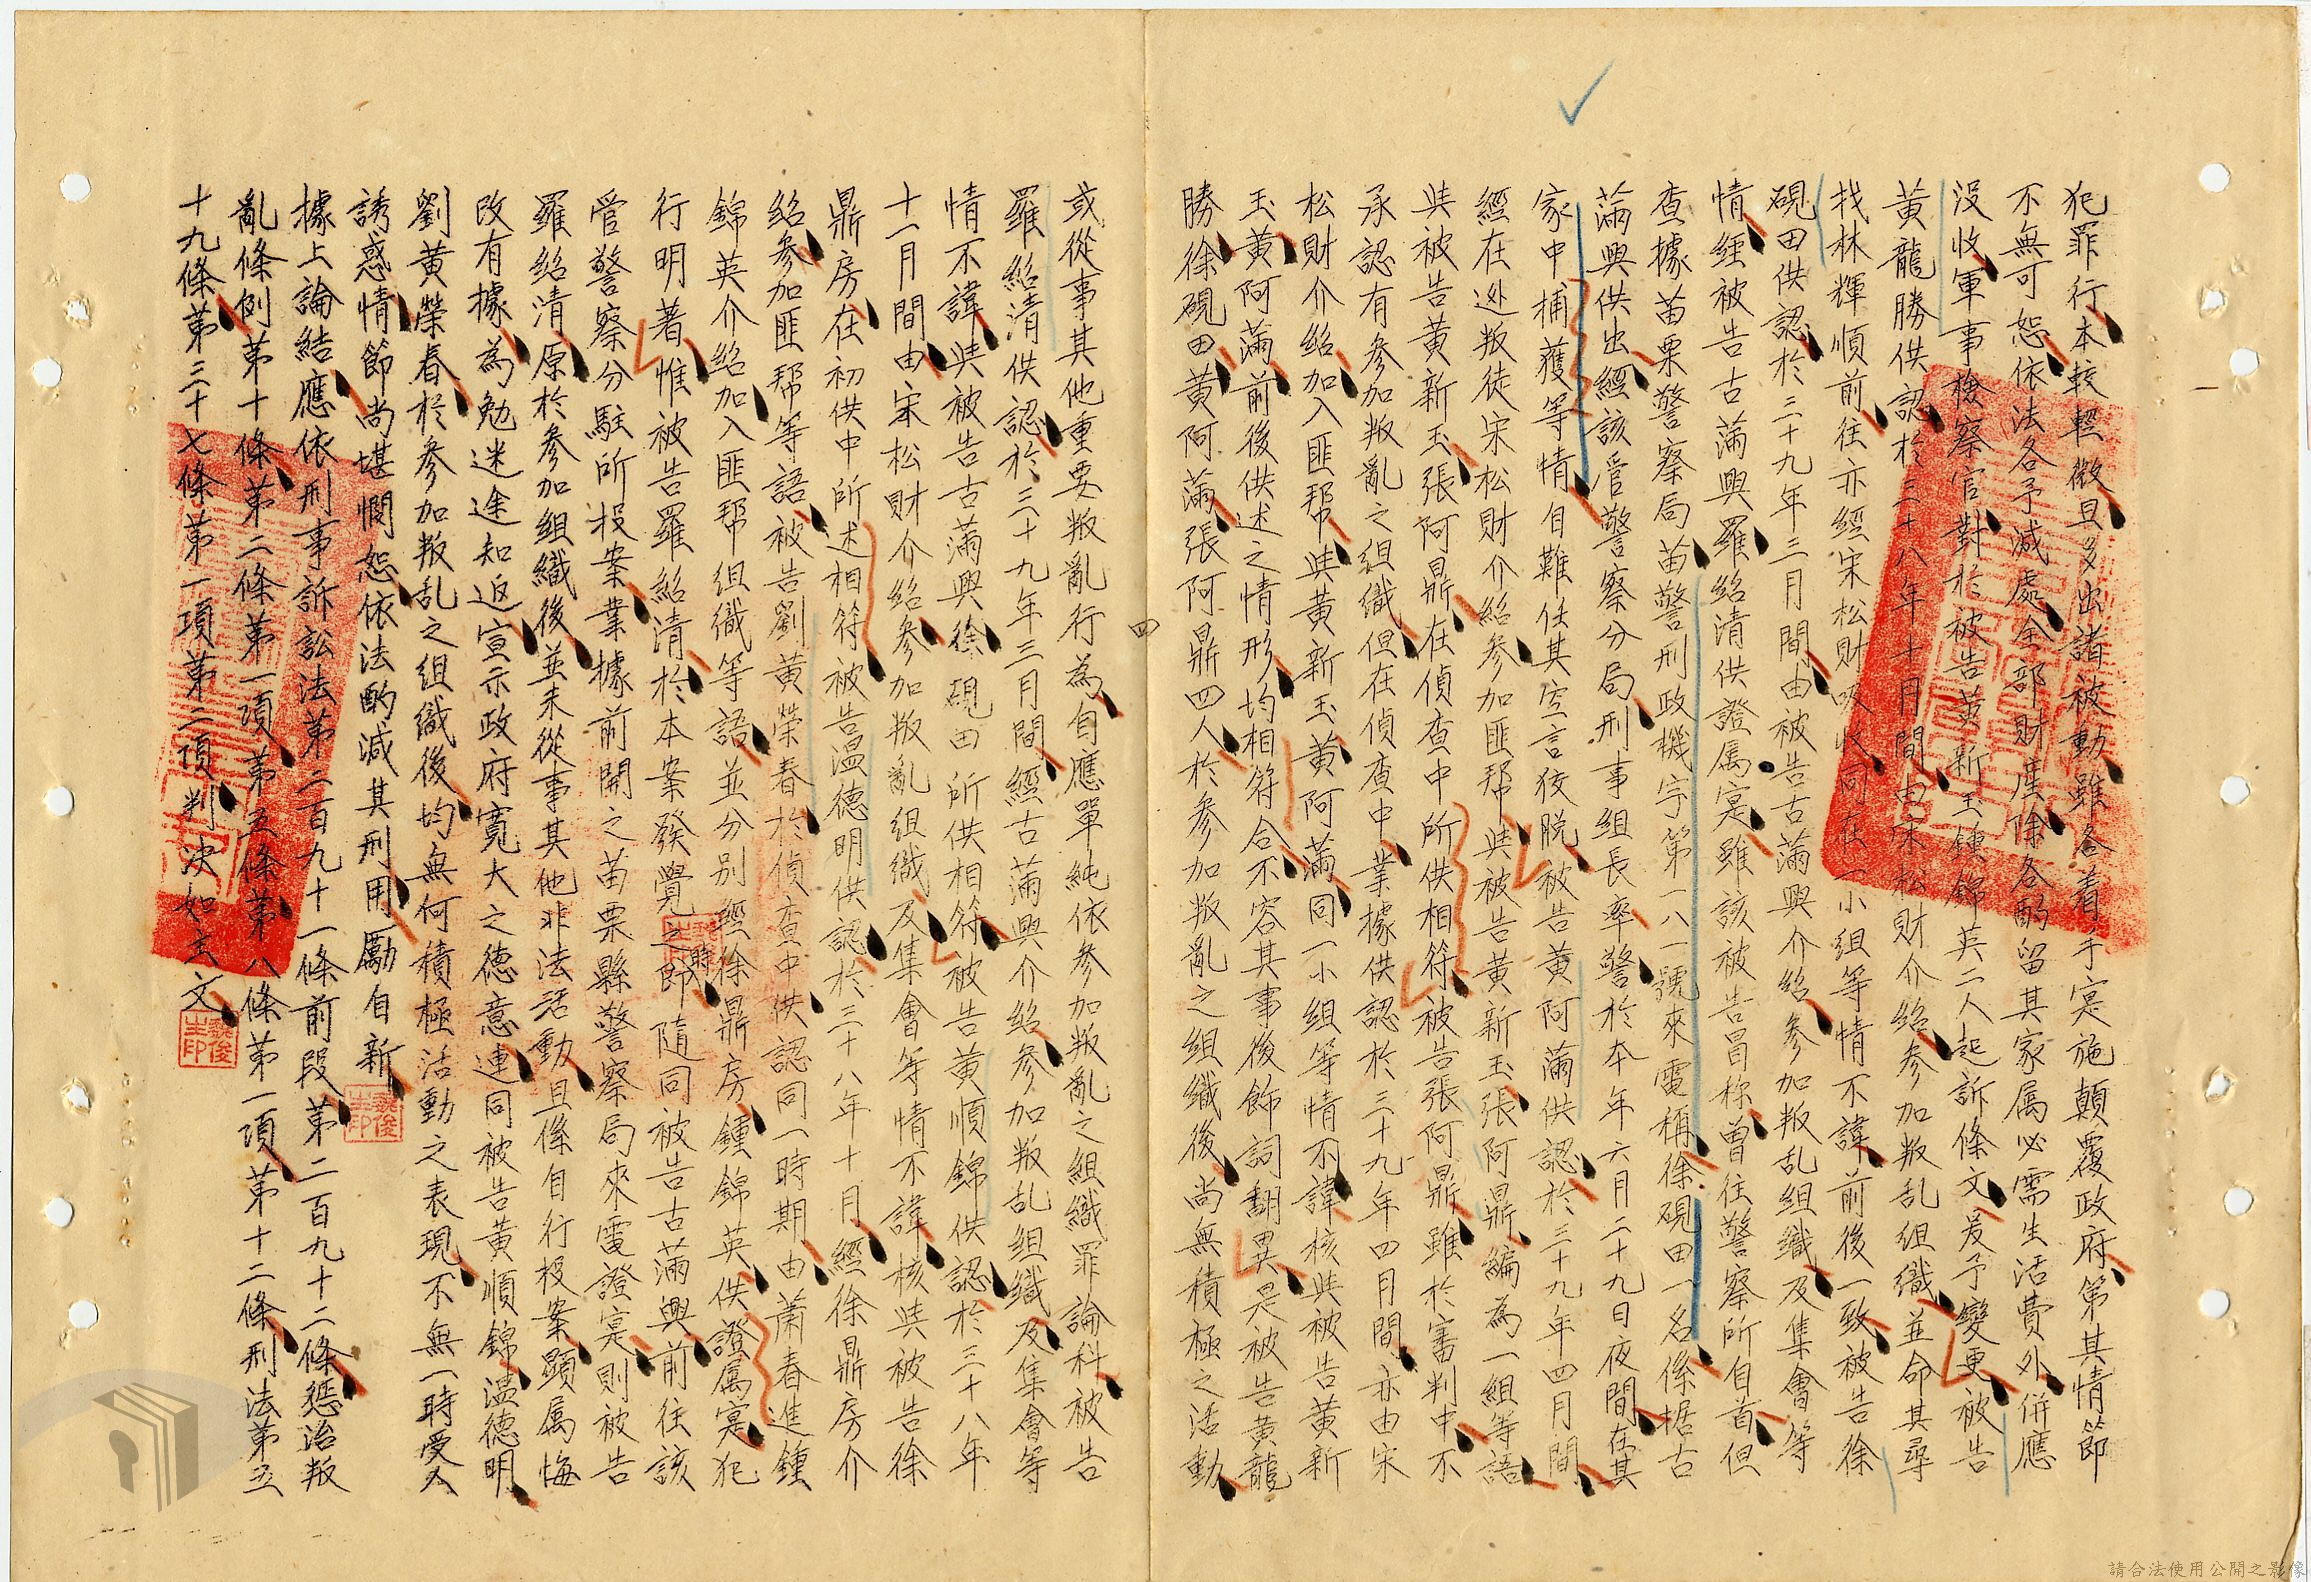 犯罪行本較輕微且多出諸被動雖各着手实施顛覆政府第其情節
不無可恕依法各予減處全部財產除各酌留其家属必需生活費外併應
沒收軍事檢察官對於被告黃新玉鍾錦英二人起訴條文爰予變更被告
黃龍勝供認於三十八年十月間由宋松財介紹參加叛乱組織並命其尋
找林輝順前往亦經宋松財吸收同在一小組等情不諱前後一致被告徐
硯田供認於三十九年三月間由被告古滿興介紹參加叛乱組織及集會等
情經被告古滿興羅紹清供證属实雖該被告冒称曾往警察所自首但
查據苗栗警察局苗警刑政機字第一八一號來電稱徐硯田一名係据古
滿興供出經該管警察分局刑事組長率警於本年六月二十九日夜間在其
家中捕獲等情自難任其空言狡脫被告黃阿滿供認於三十九年四月間
經在逃叛徒宋松財介紹參加匪帮與被告黃新玉張阿鼎編為一組等語
與被告黃新玉張阿鼎在偵查中所供相符被告張阿鼎雖於審判中不
承認有參加叛亂之組織但在偵查中業據供認於三十九年四月間亦由宋
松財介紹加入匪帮與黃新玉黃阿滿同一小組等情不諱核與被告黃新
玉黃阿滿前後供述之情形均相符合不容其事後飾詞翻異是被告黃龍
勝徐硯田黃阿滿張阿鼎四人於參加叛亂之組織後尚無積極之活動
四
或從事其他重要叛亂行為自應單純依參加叛亂之組織罪論科被告
羅紹清供認於三十九年三月間經古滿興介紹參加叛乱組織及集會等
情不諱與被告古滿興徐硯田所供相符被告黃順錦供認於三十八年
十一月間由宋松財介紹參加叛亂組織及集會等情不諱核與被告徐
鼎房在初供中所述相符被告溫德明供認於三十八年十月經徐鼎房介
紹參加匪帮等語被告劉黃榮春於偵查中供認同一時期由蕭春進鍾
錦英介紹加入匪帮組織等語並分別經徐鼎房鍾錦英供證属实犯
行明著惟被告羅紹清於本案發覺之時即隨同被告古滿興前往該
管警察分駐所投案業據前開之苗栗縣警察局來電證实則被告
羅紹清原於參加組織後並未從事其他非法活動且係自行投案顯属悔
改有據為勉迷途知返宣示政府寬大之德意連同被告黃順錦溫德明
劉黃榮春於參加叛乱之組織後均無何積極活動之表現不無一時受人
誘惑情節尚堪憫恕依法酌減其刑用勵自新
據上論結應依刑事訴訟法第二百九十一條前段第二百九十二條懲治叛
亂條例第十條第二條第一項第五條第八條第一項第十二條刑法第五
十九條第三十七條第一項第二項判决如主文
請合法使用公開之影像